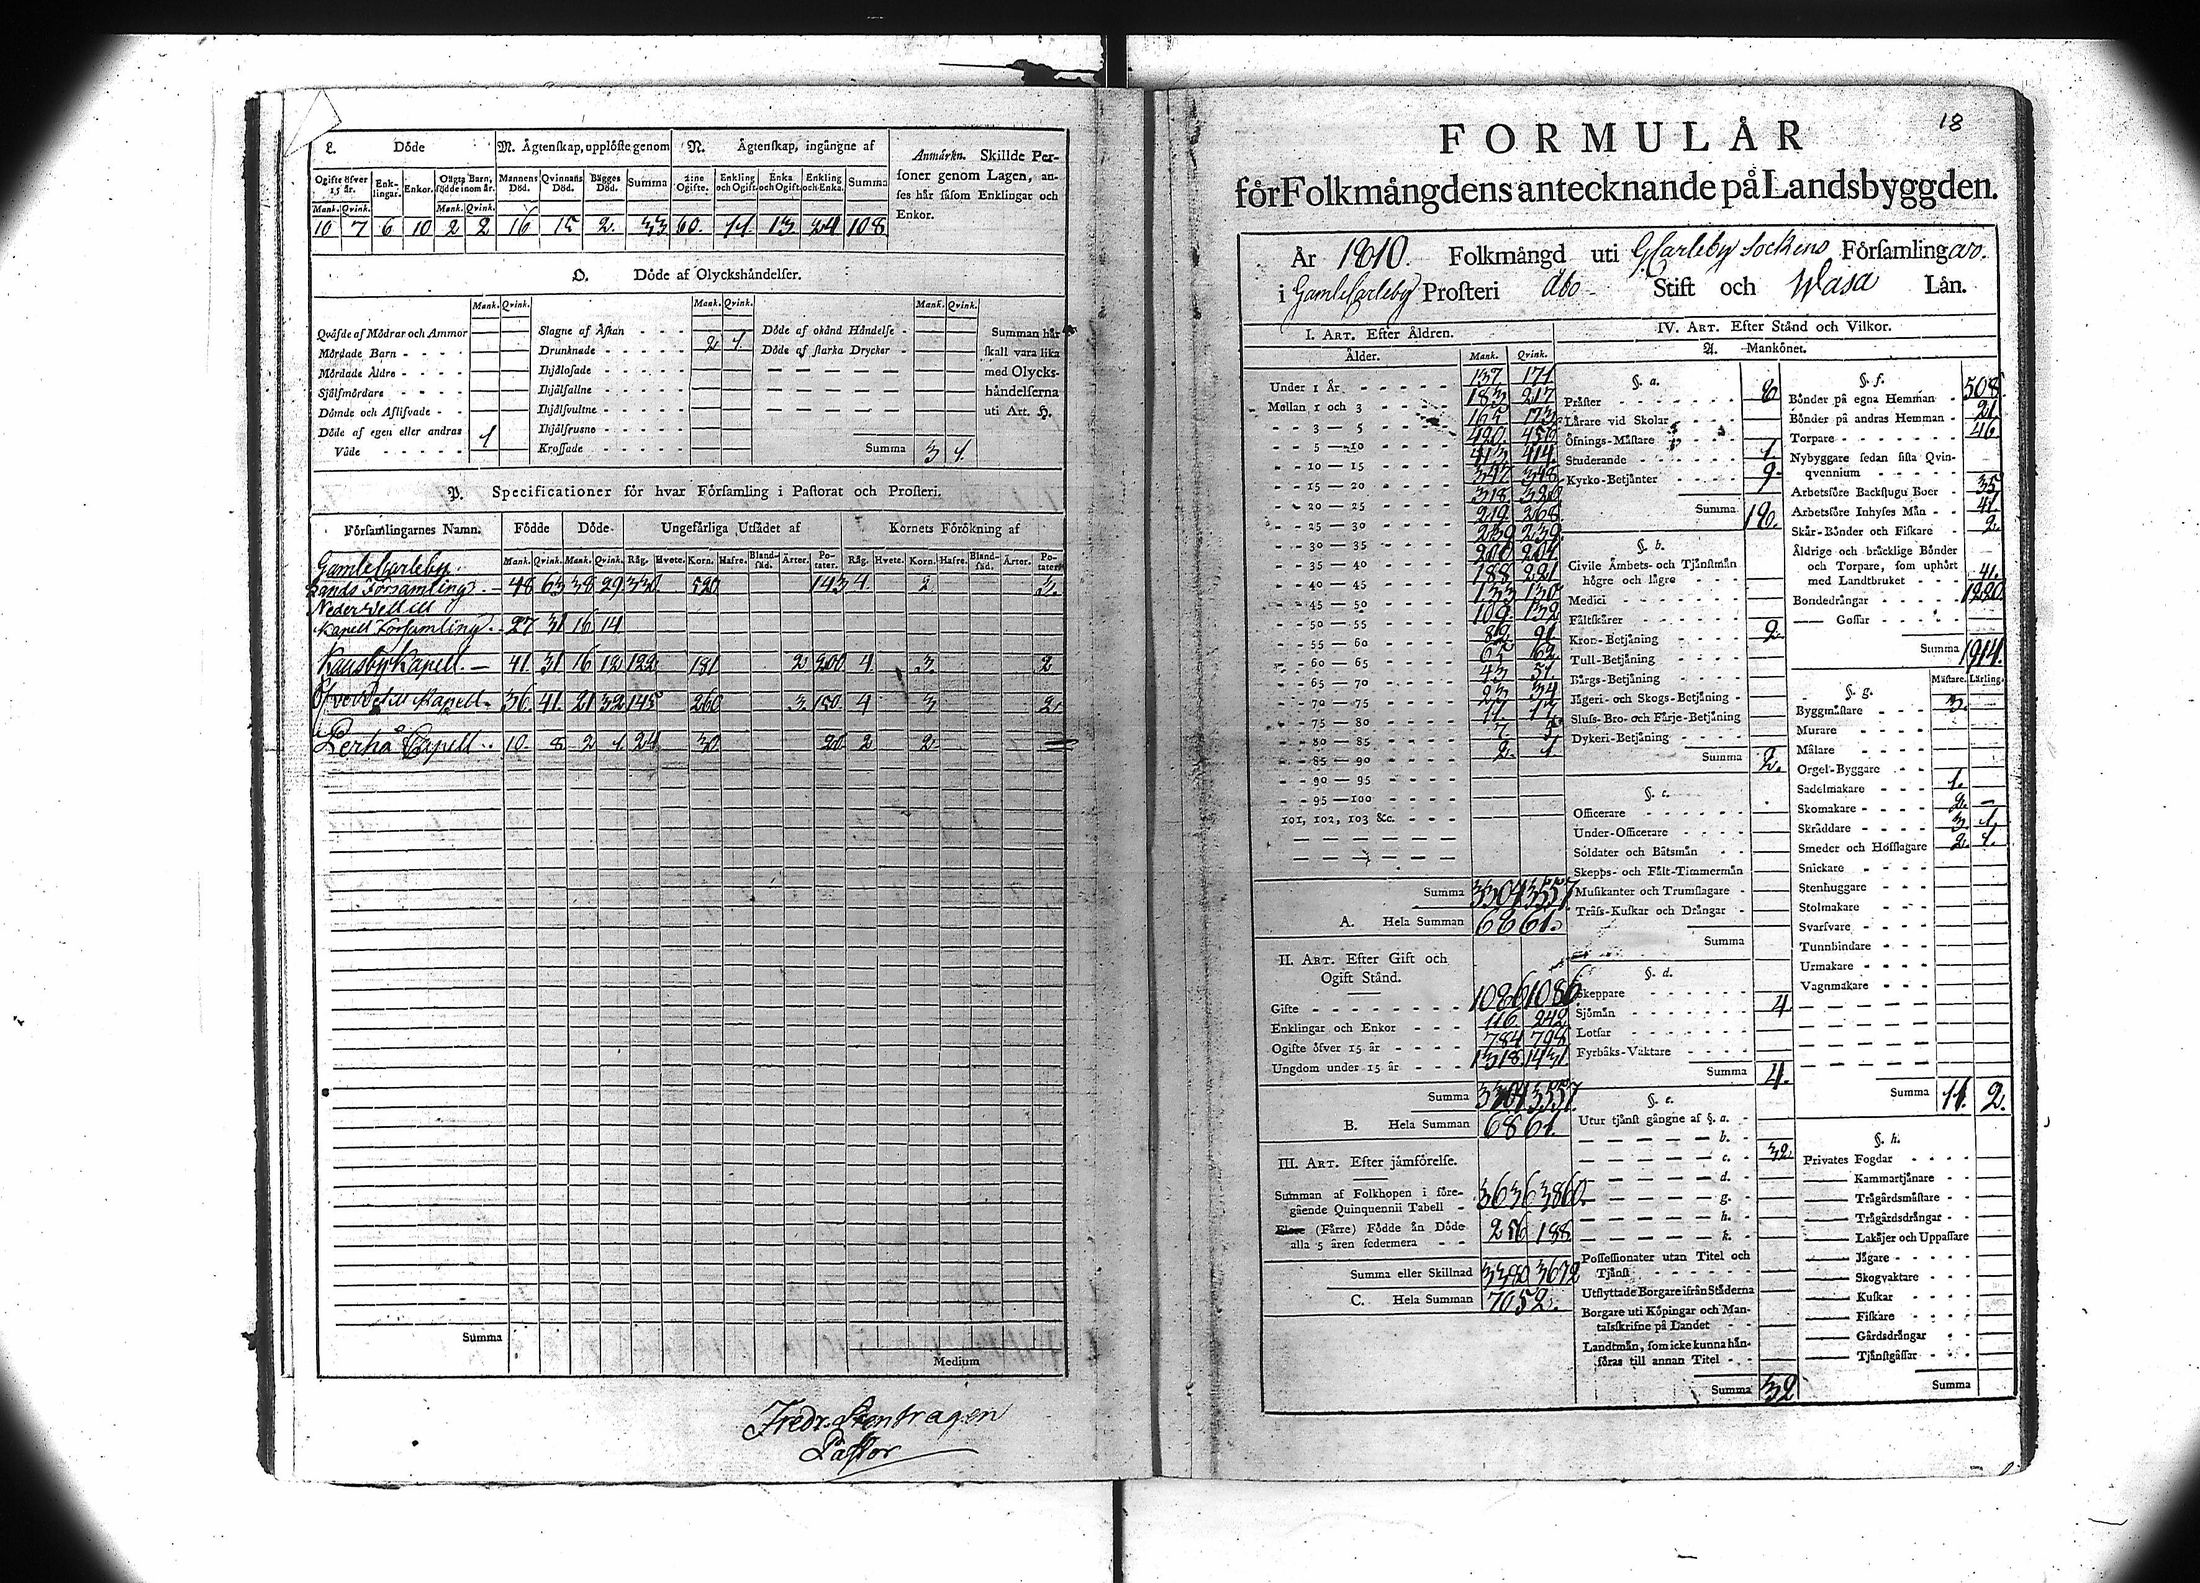 L. Döde
M. Ågtenskap, upplöste genom
N. Ågtenskap, ingångne af
Ogifte öfver 15 år. Enklingar. Enkor. Oägta Barn, födde inom år. Mannens Död. Qvinnans Död. Bägges Död. Summa Enkling och Ogift. Enka och Ogift. Enkling och Enka. Summa
Mank. Qvink. Mank. Qvink.
10 7 6 10 2 2 16 15 2. 33 60. 11 13. 24 108
Anmärkn. Skillde Per-
soner genom Lagen, an-
ses här såsom Enklingar och
Enkor.
O. Döde af Olyckshändelser.
Mank. Qvink. Mank. Qvink. Mank. Qvink.
Qväfde af Mödrar och Ammor
Mördade Barn
Mördade Äldre
Självmördare
Dömde och Aflifvade
Döde af egen eller andras
Våde 1
Slagne af Åskan
Drunknade 2 1
Ihjälfrusne
Krossade
Döde af okänd Händelse
Döde af starka Drycker
Summa 3 1.
Summan här
skall vara lika
med Olycks-
händelserna
uti Art. H.
P. Specificationer för hvar Församling i Pastorat och Prosteri.
Församlingarnes Namn. Födde Döde Ungefärliga Utsädet af Kornets Förökning af
Mank. Qvink. Mank. Qvink. Råg. Hvete. Korn. Hafre. Bland-säd. Ärter. Po-tater. Råg. Hvete. Korn. Hafre. Bland-säd. Ärter. Po-tater.
GamleCarleby
Lands Församling. 48 63 38 29 330 520 143 4. 2.
Nederwetill
Kapell Församling. 27 31 16 14
Kausby Kapell. 41. 31 16 12 122 181 2 200 4 3. 2
Öfverwetill Kapell. 36. 41. 21 32 145 260 3 150. 4 3 2.
Perho Capell. 10. 8 2 1 24 30 20 2 2
Summa
Medium
Pastor
18
FORMULÄR
för Folkmängdens antecknande på Landsbyggden.
År 1810. Folkmängd uti GCarleby Sockens Församlingar.
i GamleCarleby Prosteri Åbo Stift och Wasa Län.
I. ART. Efter Åldren.
Ålder. Mank. Qvink.
Under 1 År 137 171
Mellan 1 och 3 183 217
3 — 5 165 173
5 — 10 420. 456
10 — 15 413 414.
15 — 20 347 348
20 — 25 318 320
25 — 30 219 268
30 — 35 239 239
35 — 40 200 204
40 — 45 188 221
45 — 50 133 130
50 — 55 109 132
55 — 60 82 91
60 — 65 65 62
65 — 70 43 51.
70 — 75 23 34
75 — 80 11. 17
80 — 85 7
85 — 90 2. 1
90 — 95
95 — 100
101, 102, 103 &c.
Summa 3304 3557
A. Hela Summan 6861.
II. ART. Efter Gift och
Ogift Stånd.
Gifte 1086 1086
Enklingar och Enkor 116 242
Ogifte öfver 15 år 784 798
Ungdom under 15 år 1318 1431
Summa 3304 3557.
B. Hela Summan 6861.
III. ART. Efter jämförelse.
Summan af Folkhopen i före-
gående Quinquennii Tabell 3636 3860.
(Färre) Födde än Döde
alla 5 åren sedermera 256 188
Summa eller Skillnad 3380 3672
C. Hela Summan 7052.
IV. ART. Efter Stånd och Vilkor.
A. Mankönet.
§. a.
Präster 8
Lärare vid Skolar
Öfnings-Mästare
Studerande 1.
Kyrko-Betjänter 9.
Summa 18.
§. b.
Civile Ämbets- och Tjänstmän
högre och lägre
Medici
Fältskärer
Kron-Betjäning 2
Tull-Betjäning
Bärgs-Betjäning
Jägeri- och Skogs-Betjäning
Sluss-Bro- och Färje-Betjäning
Dykeri-Betjäning
Summa 2.
§. c.
Officerare
Under-Officerare
Soldater och Båtsmän
Skepps- och Fält-Timmermän
Musikanter och Trumslagare
Träss-Kuskar och Drängar
Summa
§. d.
Skeppare
Sjömän 4
Lotsar
Fyrbåks-Vaktare
Summa 4.
§. e.
Utur tjänst gångne af §. a.
b.
c. 32
d.
g.
h.
k.
Possessionater utan Titel och
Tjänst
Utflyttade Borgare ifrån Städerna
Borgare uti Köpingar och Man-
talsskrifne på Landet
Landtmän, som icke kunna hän-
föras till annan Titel
Summa 32
§. f.
Bönder på egna Hemman 508.
Bönder på andras Hemman 21.
Torpare 46
Nybyggare sedan sista Qvin-
qvennium
Arbetsföre Backstugu Boer 35
Arbetsföre Inhyses Män 41.
Skär-Bönder och Fiskare 2.
Åldrige och bräcklige Bönder
och Torpare, som uphört
med Landtbruket 41.
Bondedrängar 1220
Gossar
Summa 1914.
§. g. Mästare. Lärling.
Byggmästare 3.
Murare
Målare
Orgel-Byggare
Sadelmakare 1.
Skomakare 2. —
Skräddare 3. 1.
Smeder och Hofslagare 2. 1.
Snickare
Stenhuggare
Stolmakare
Svarfvare
Tunnbindare
Urmakare
Vagnmakare
Summa 11. 2.
§. h.
Privates Fogdar
Kammartjänare
Trägårdsmästare
Trägårdsdrängar
Lakäjer och Uppassare
Jägare
Skogvaktare
Kuskar
Fiskare
Gårdsdrängar
Tjänstgåssar
Summa